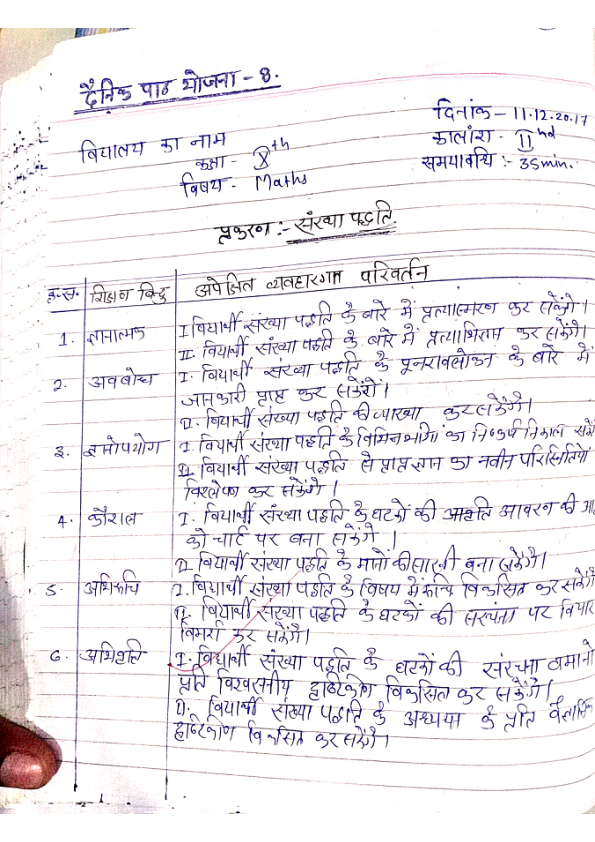 दैनिक पाठ योजना - 8.
दिनांक - 11.12.2017
विद्यालय का नाम
कालांश - IInd
कक्षा - Xth
समयावधि :- 35 min.
विषय - Maths
प्रकरण :- संख्या पद्धति.
क्र.स. शिक्षण बिन्दु अपेक्षित व्यवहारगत परिवर्तन
1. ज्ञानात्मक I विद्यार्थी संख्या पद्धति के बारे में प्रत्यास्मरण कर सकेंगे।
II. विद्यार्थी संख्या पद्धति के बारे में प्रत्याभिज्ञान कर सकेंगे।
2. अवबोध I. विद्यार्थी संख्या पद्धति के पुनरावलोकन के बारे में
जानकारी प्राप्त कर सकेंगे।
II. विद्यार्थी संख्या पद्धति की व्याख्या कर सकेंगे।
3. ज्ञानोपयोग I विद्यार्थी संख्या पद्धति के विभिन्न भागों का निष्कर्ष निकाल सकें
II विद्यार्थी संख्या पद्धति से प्राप्त ज्ञान का नवीन परिस्थितियों
विश्लेषण कर सकेंगे।
4. कौशल I. विद्यार्थी संख्या पद्धति के घटकों की आवरण की
को चार्ट पर बना सकेंगे।
II विद्यार्थी संख्या पद्धति के मानों की सारणी बना सकेंगे।
5. अभिरूचि I. विद्यार्थी संख्या पद्धति के विषय में रूचि विकसित कर सकेंगे
II. विद्यार्थी संख्या पद्धति के घटकों की सरचंना पर विचार
विमर्श कर सकेंगे।
6. अभिवृत्ति I. विद्यार्थी संख्या पद्धति के घटकों की संरचना
प्रति विश्वसनीय दृष्टिकोण विकसित कर सकेंगे।
II. विद्यार्थी संख्या पद्धति के अध्यया के प्रति वैज्ञानिक
दृष्टिकोण विकसित कर सकेंगे।